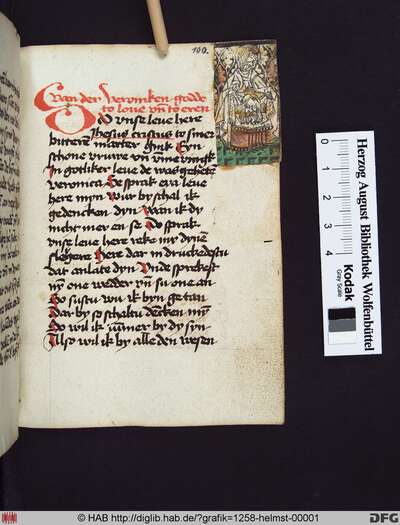 100.
Van der veroniken gode
to loue vn to eren
Do vnse leue here
Jhesus cristus to siner
bitteren marter ghink Eyn
schone vruwe vn ivnevruwe
In gotliker leue de was geheten
veronica Se sprak eya leue
here myn wur by schal ik
gedencken dyn wan ik dy
nicht mer en se Do sprak
vnse leue here reke my dyne
sloyere Here dar in druckedestu
dat anlate dyn Vnde sprekest
my one wedder vn su one an
So sustu wu ik byn getan
dar by so schaltu dencken my
So wil ik ummer by dy syn
Also wil ik by alle den wesen
0 1 2 3 4
Herzog August Bibliothek Wolfenbüttel
Kodak
Gray Scale
© HAB http://diglib.hab.de/?grafik=1258-helmst-00001
DFG